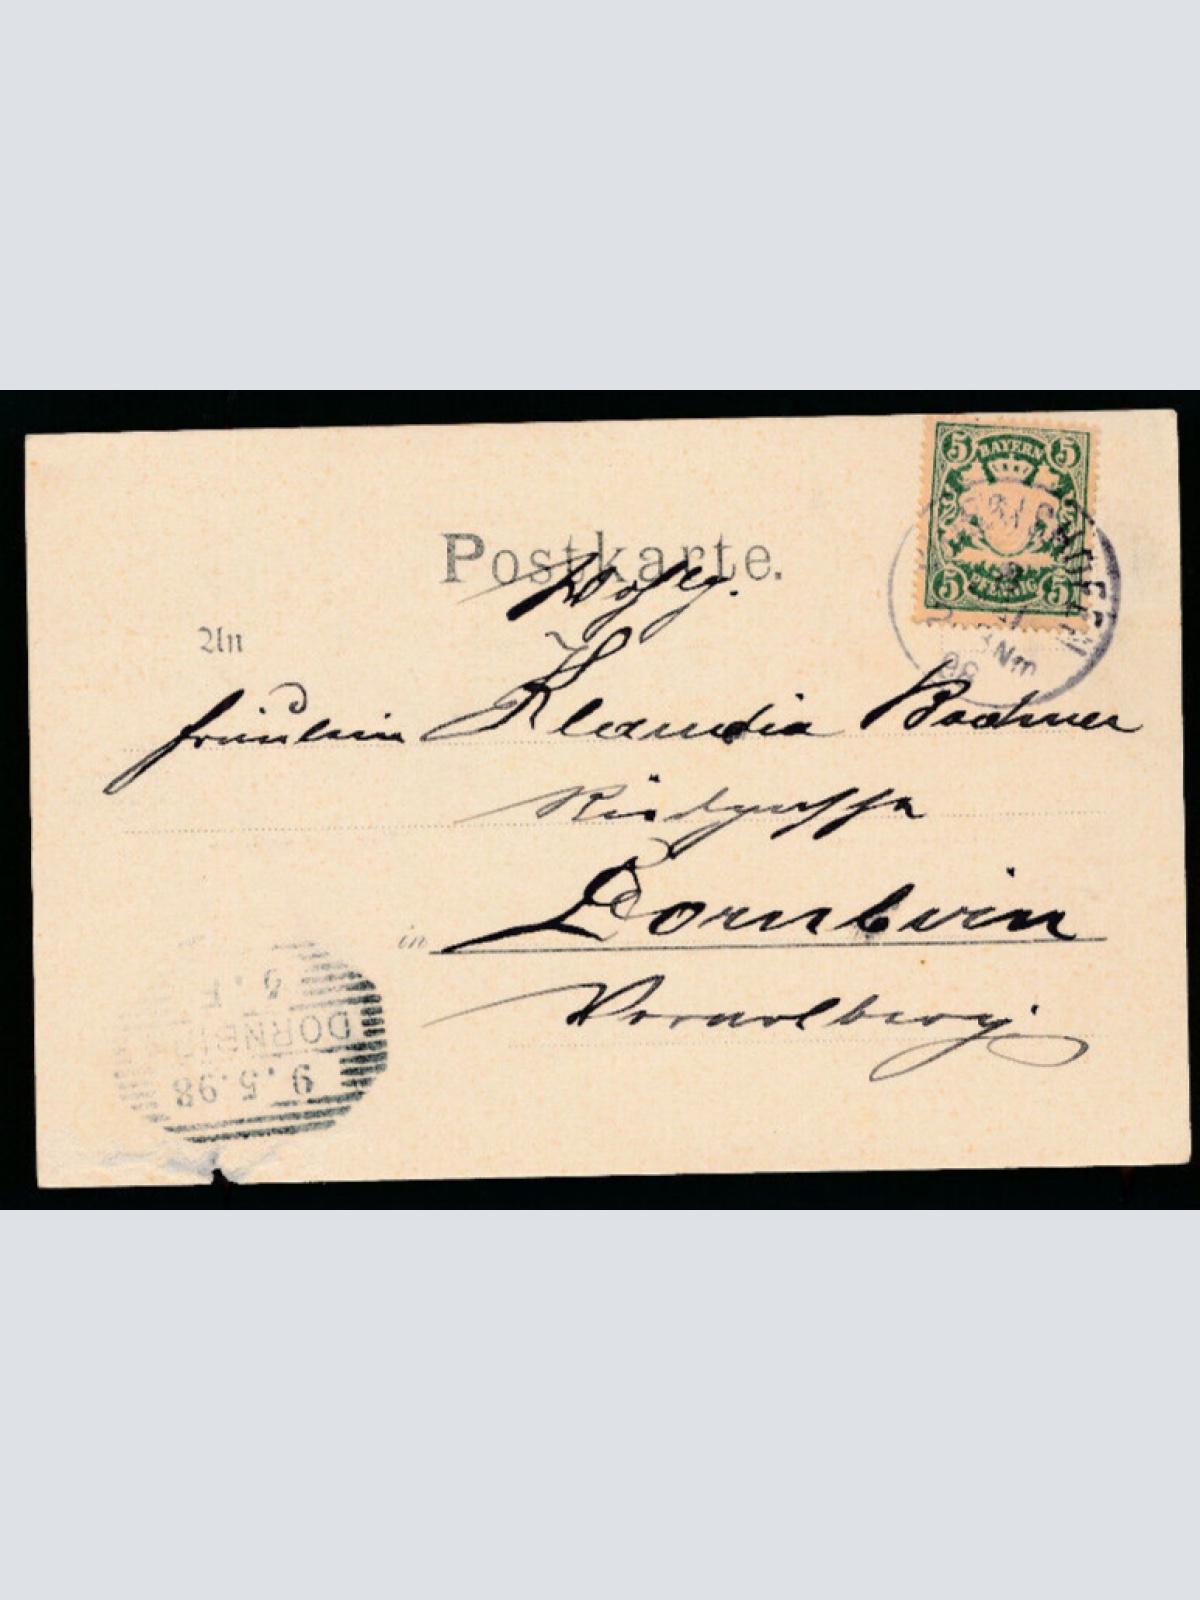 5 BAYERN 5
5 PFENNIG 5
Postkarte.
Wohlg.
An
Fräulein Klaudia Bachner
in Dornbirn
Vorarlberg.
3 Nm
98
DORNBI
9.5.98